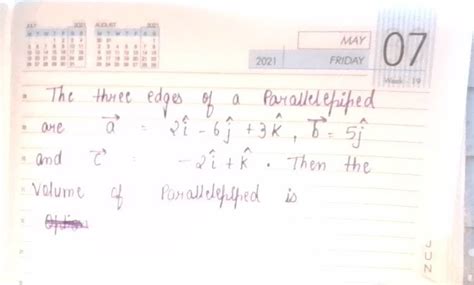 JULY 2021
AUGUST 2021
MAY
2021 FRIDAY
07
Week - 19
The three edges of a Parallelepiped
are a⃗ = 2î - 6ĵ + 3k̂, b⃗ = 5ĵ
and c⃗ = -2î + k̂. Then the
volume of Parallelepiped is
JUN